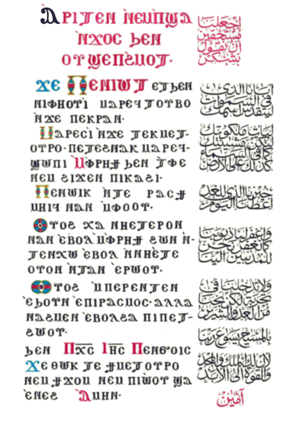 Ⲁⲣⲓⲧⲉⲛ ⲛ̀ⲉⲙⲡϣⲁ
ⲛ̀ϫⲟⲥ ϧⲉⲛ
ⲟⲩϣⲉⲡϩⲙⲟⲧ.
Ϫⲉ Ⲡⲉⲛⲓⲱⲧ ⲉⲧϧⲉⲛ
ⲛⲓⲫⲏⲟⲩⲓ̀ ⲙⲁⲣⲉϥⲧⲟⲩⲃⲟ
ⲛ̀ϫⲉ ⲡⲉⲕⲣⲁⲛ.
Ⲙⲁⲣⲉⲥⲓ̀ ⲛ̀ϫⲉ ⲧⲉⲕⲙⲉⲧ-
ⲟⲩⲣⲟ. ⲡⲉⲧⲉϩⲛⲁⲕ ⲙⲁⲣⲉϥ-
ϣⲱⲡⲓ ⲙ̀ⲫⲣⲏϯ ϧⲉⲛ ⲧ̀ⲫⲉ
ⲛⲉⲙ ϩⲓϫⲉⲛ ⲡⲓⲕⲁϩⲓ.
Ⲡⲉⲛⲱⲓⲕ ⲛ̀ⲧⲉ ⲣⲁⲥϯ
ⲙⲏⲓϥ ⲛⲁⲛ ⲙ̀ⲫⲟⲟⲩ.
Ⲟⲩⲟϩ ⲭⲁ ⲛⲏⲉⲧⲉⲣⲟⲛ
ⲛⲁⲛ ⲉ̀ⲃⲟⲗ ⲙ̀ⲫⲣⲏϯ ϩⲱⲛ ⲛ̀-
ⲧⲉⲛⲭⲱ ⲉ̀ⲃⲟⲗ ⲛ̀ⲛⲏⲉ̀ⲧⲉ
ⲟⲩⲟⲛ ⲛ̀ⲧⲁⲛ ⲉ̀ⲣⲱⲟⲩ.
Ⲟⲩⲟϩ ⲙ̀ⲡⲉⲣⲉⲛⲧⲉⲛ
ⲉ̀ϧⲟⲩⲛ ⲉ̀ⲡⲓⲣⲁⲥⲙⲟⲥ. ⲁⲗⲗⲁ
ⲛⲁϩⲙⲉⲛ ⲉ̀ⲃⲟⲗϩⲁ ⲡⲓⲡⲉⲧ-
ϩⲱⲟⲩ.
ϧⲉⲛ Ⲡⲭ̅ⲥ̅ Ⲓⲏ̅ⲥ̅ Ⲡⲉⲛϭⲟⲓⲥ
Ϫⲉ ⲑⲱⲕ ⲧⲉ ϯⲙⲉⲧⲟⲩⲣⲟ
ⲛⲉⲙ ϯϫⲟⲙ ⲛⲉⲙ ⲡⲓⲱ̀ⲟⲩ ϣⲁ
ⲉ̀ⲛⲉϩ Ⲁⲙⲏⲛ.
اجعلنا
مستحقين
أن نقول
بشكر
أبانا الذي
في السموات
ليتقدس اسمك
ليأت ملكوتك
لتكن مشيئتك
كما في السماء
كذلك على الأرض
خبزنا الذي للغد
أعطنا اليوم
واغفر لنا ذنوبنا
كما نغفر نحن
للمذنبين إلينا
ولا تدخلنا في
تجربة لكن نجنا
من الشرير
بالمسيح يسوع ربنا
لأن لك الملك
والقوة والمجد إلى الأبد
آمين